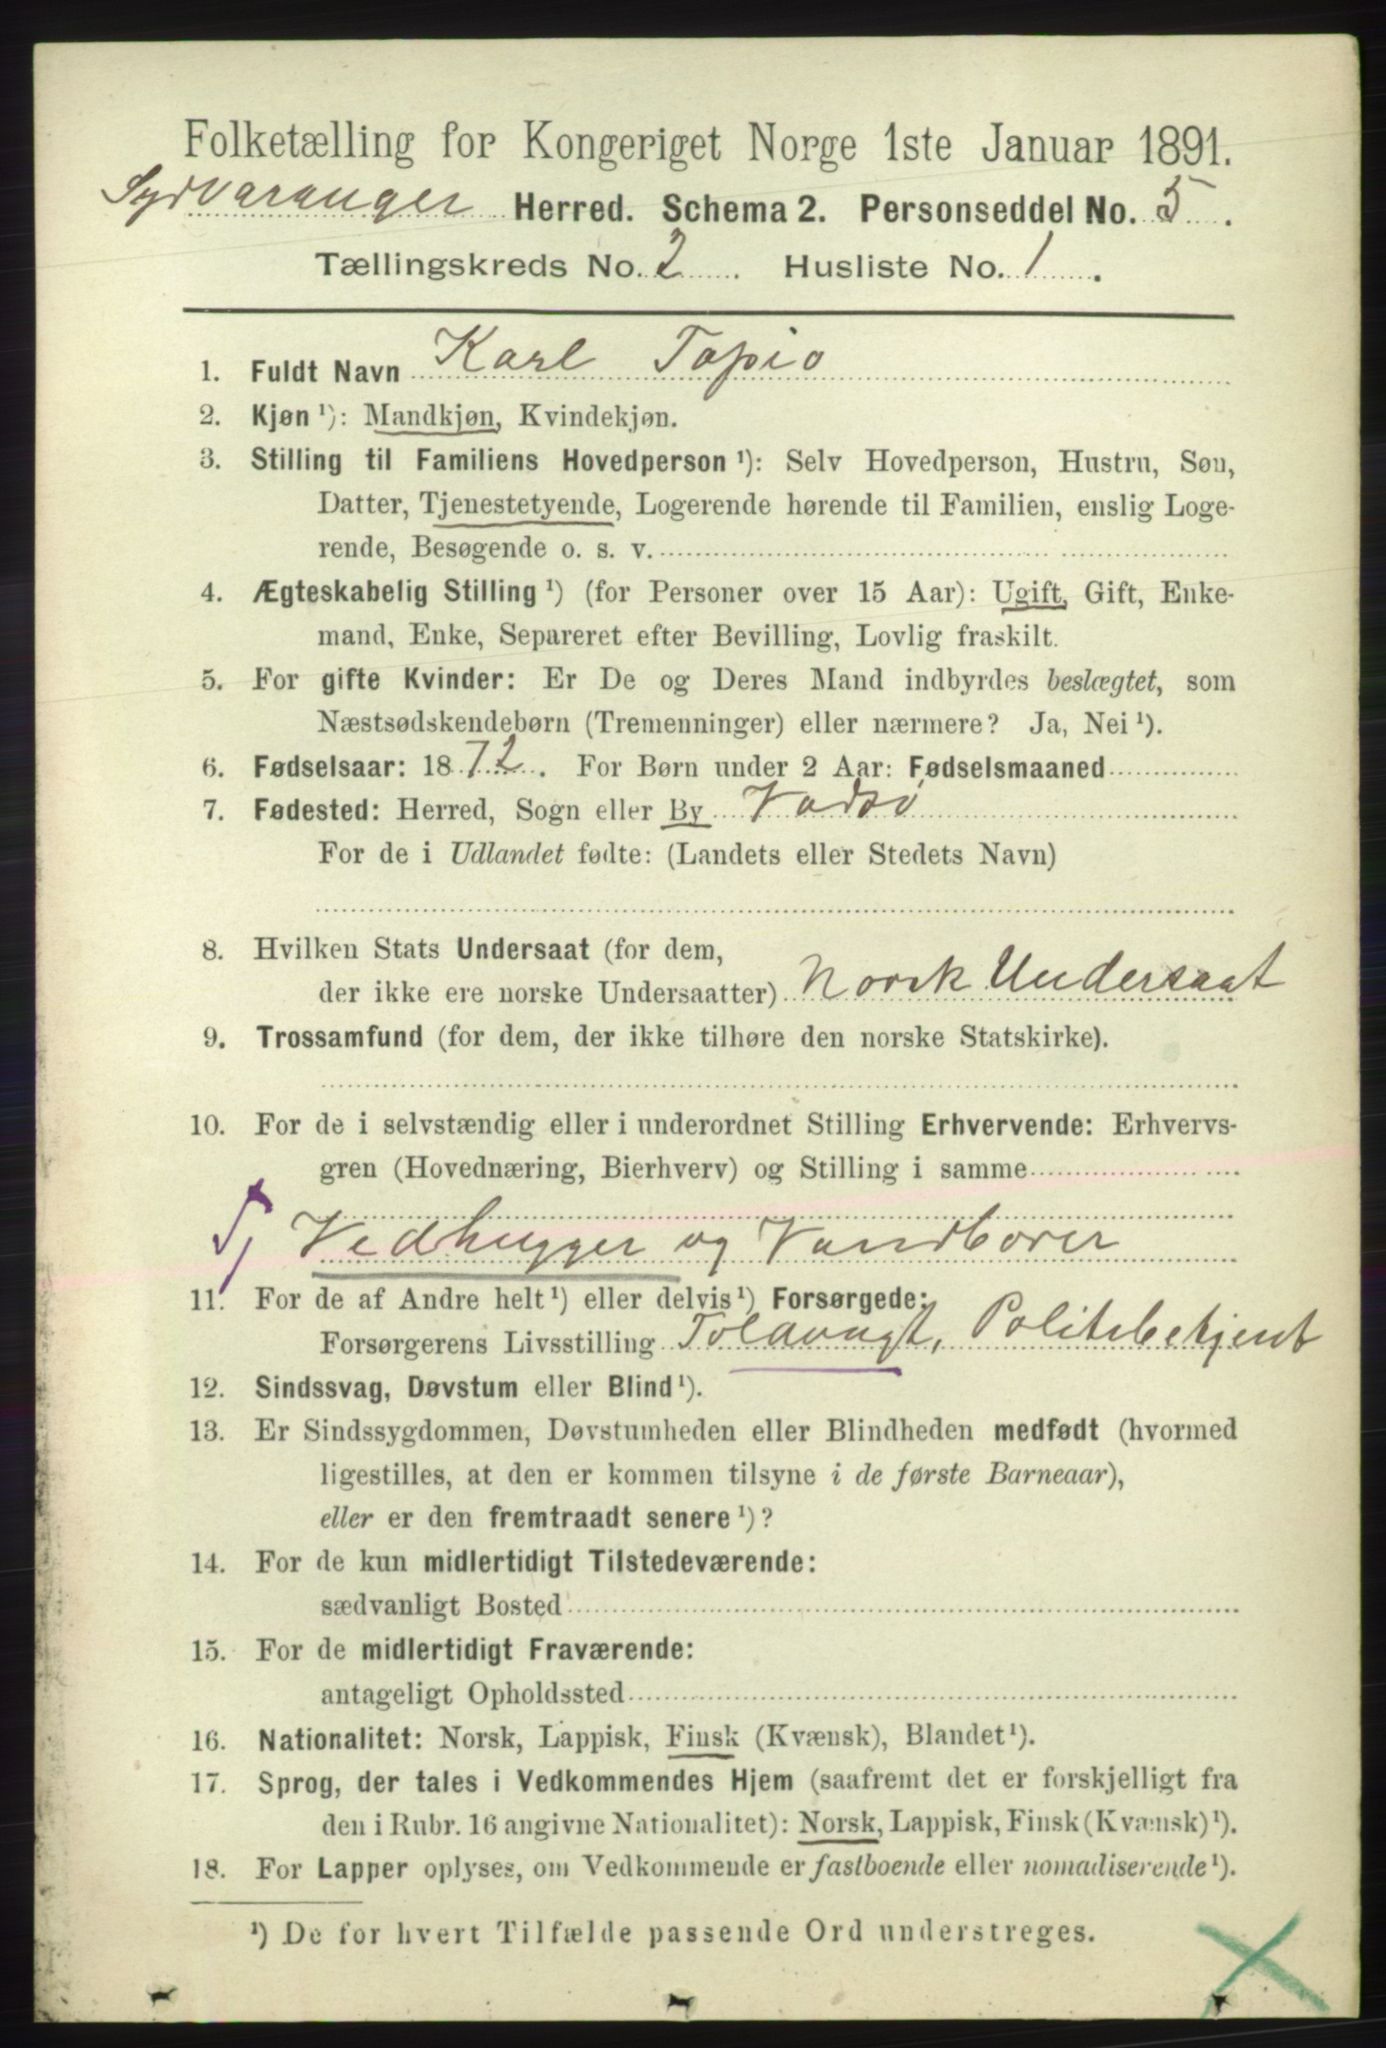 Folketælling for Kongeriget Norge 1ste Januar 1891.
Sydvaranger Herred. Schema 2. Personseddel No. 5.
Tællingskreds No. 2. Husliste No. 1.
1. Fuldt Navn Karl Tapio
2. Kjøn ¹): Mandkjøn, Kvindekjøn.
3. Stilling til Familiens Hovedperson ¹): Selv Hovedperson, Hustru, Søn,
Datter, Tjenestetyende, Logerende hørende til Familien, enslig Loge-
rende, Besøgende o. s. v.
4. Ægteskabelig Stilling ¹) (for Personer over 15 Aar): Ugift, Gift, Enke-
mand, Enke, Separeret efter Bevilling, Lovlig fraskilt.
5. For gifte Kvinder: Er De og Deres Mand indbyrdes beslægtet, som
Næstsødskendebørn (Tremenninger) eller nærmere? Ja, Nei ¹).
6. Fødselsaar: 1872. For Børn under 2 Aar: Fødselsmaaned
7. Fødested: Herred, Sogn eller By Vadsø
For de i Udlandet fødte: (Landets eller Stedets Navn)
8. Hvilken Stats Undersaat (for dem,
der ikke ere norske Undersaatter) Norsk Undersaat
9. Trossamfund (for dem, der ikke tilhøre den norske Statskirke).
10. For de i selvstændig eller i underordnet Stilling Erhvervende: Erhvervs-
gren (Hovednæring, Bierhverv) og Stilling i samme
Vedhugger og Vandbærer
11. For de af Andre helt ¹) eller delvis ¹) Forsørgede:
Forsørgerens Livsstilling Toldvagt, Politibetjent
12. Sindssvag, Døvstum eller Blind ¹).
13. Er Sindssygdommen, Døvstumheden eller Blindheden medfødt (hvormed
ligestilles, at den er kommen tilsyne i de første Barneaar),
eller er den fremtraadt senere ¹)?
14. For de kun midlertidigt Tilstedeværende:
sædvanligt Bosted
15. For de midlertidigt Fraværende:
antageligt Opholdssted
16. Nationalitet: Norsk, Lappisk, Finsk (Kvænsk), Blandet ¹).
17. Sprog, der tales i Vedkommendes Hjem (saafremt det er forskjelligt fra
den i Rubr. 16 angivne Nationalitet): Norsk, Lappisk, Finsk (Kvænsk) ¹).
18. For Lapper oplyses, om Vedkommende er fastboende eller nomadiserende ¹).
¹) De for hvert Tilfælde passende Ord understreges.